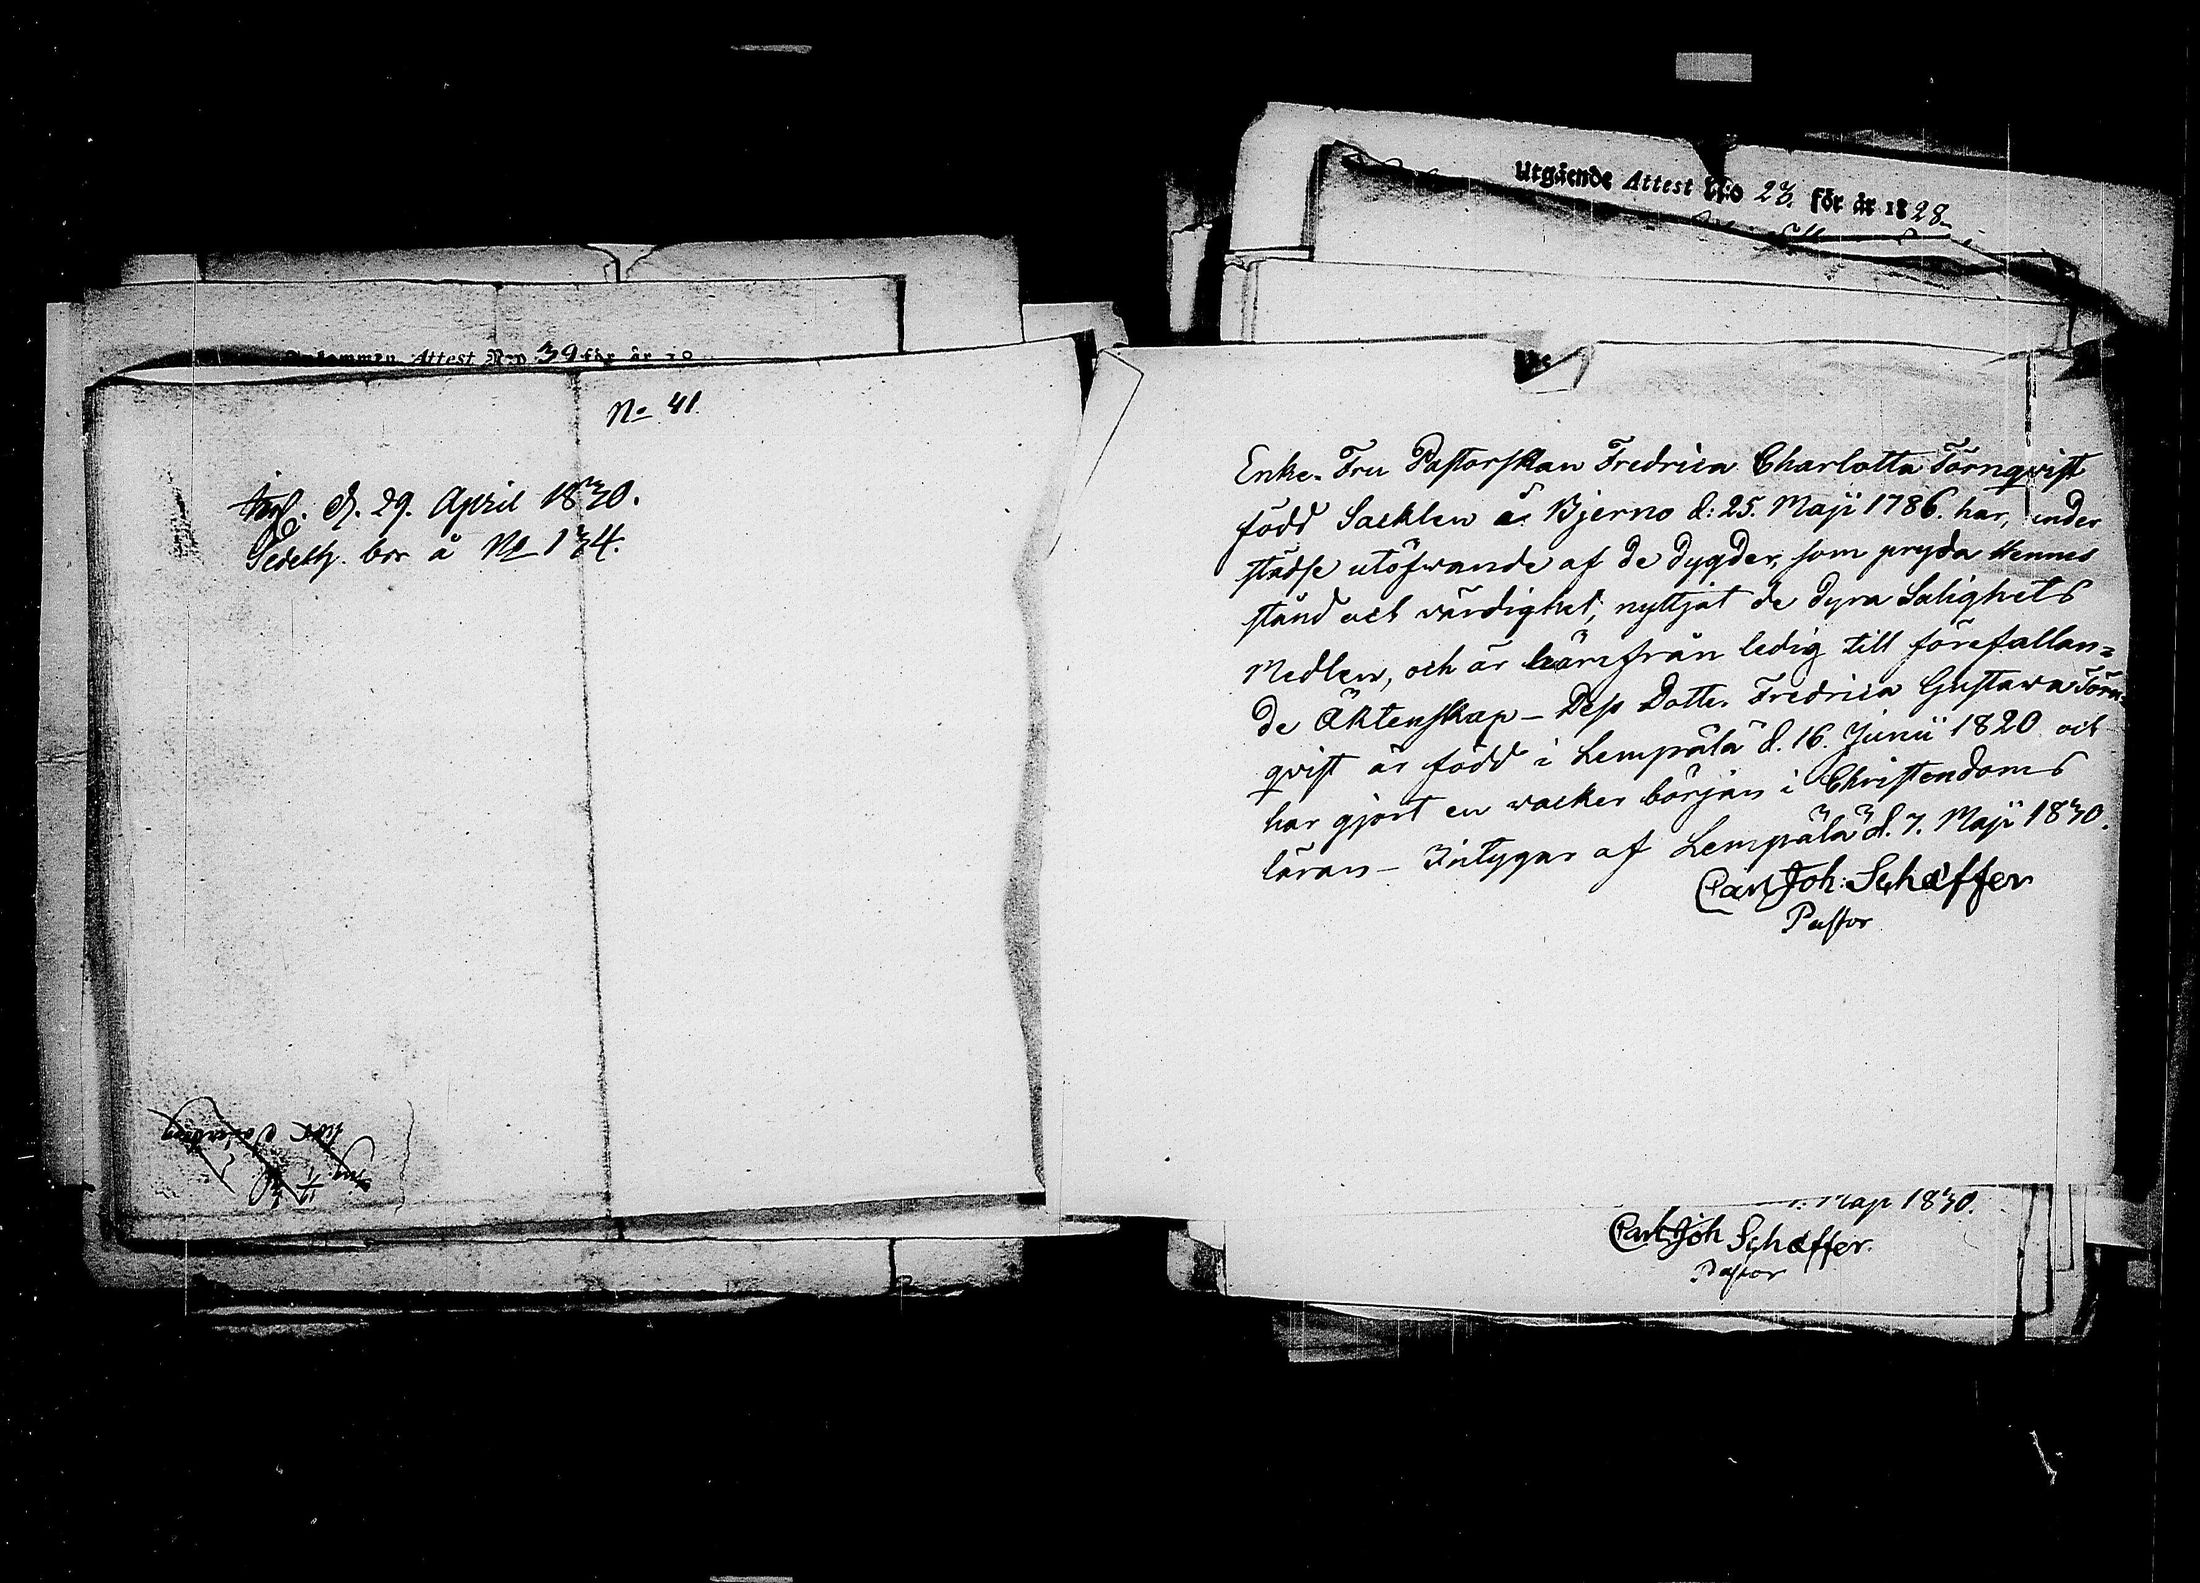 Attest N:o 39 för år
No 41.
d. 29. April 1830.
bor å No 134.
Utgående Attest N:o 23. för år 1828
Enke-Fru Pastorskan Fredrica Charlotta Törnqvist
född Sacklen å Bjerno d: 25. Maji 1786. har, under
städse utöfwande af de dygder, som pryda Hennes
stånd och värdighet, nyttjat de dyra Salighets
Medlen, och är härifrån ledig till förefallan=
de Äktenskap – Dess Dotter Fredrica Gustava Törn-
qvist är född i Lempälä d. 16. Junii 1820 och
har gjort en vacker början i Christendoms
läran – Intygar af Lempälä d. 7. Maji 1830.
Carl Joh: Schæffer
Pastor
Maji 1830.
Carl Joh Schæffer.
Pastor